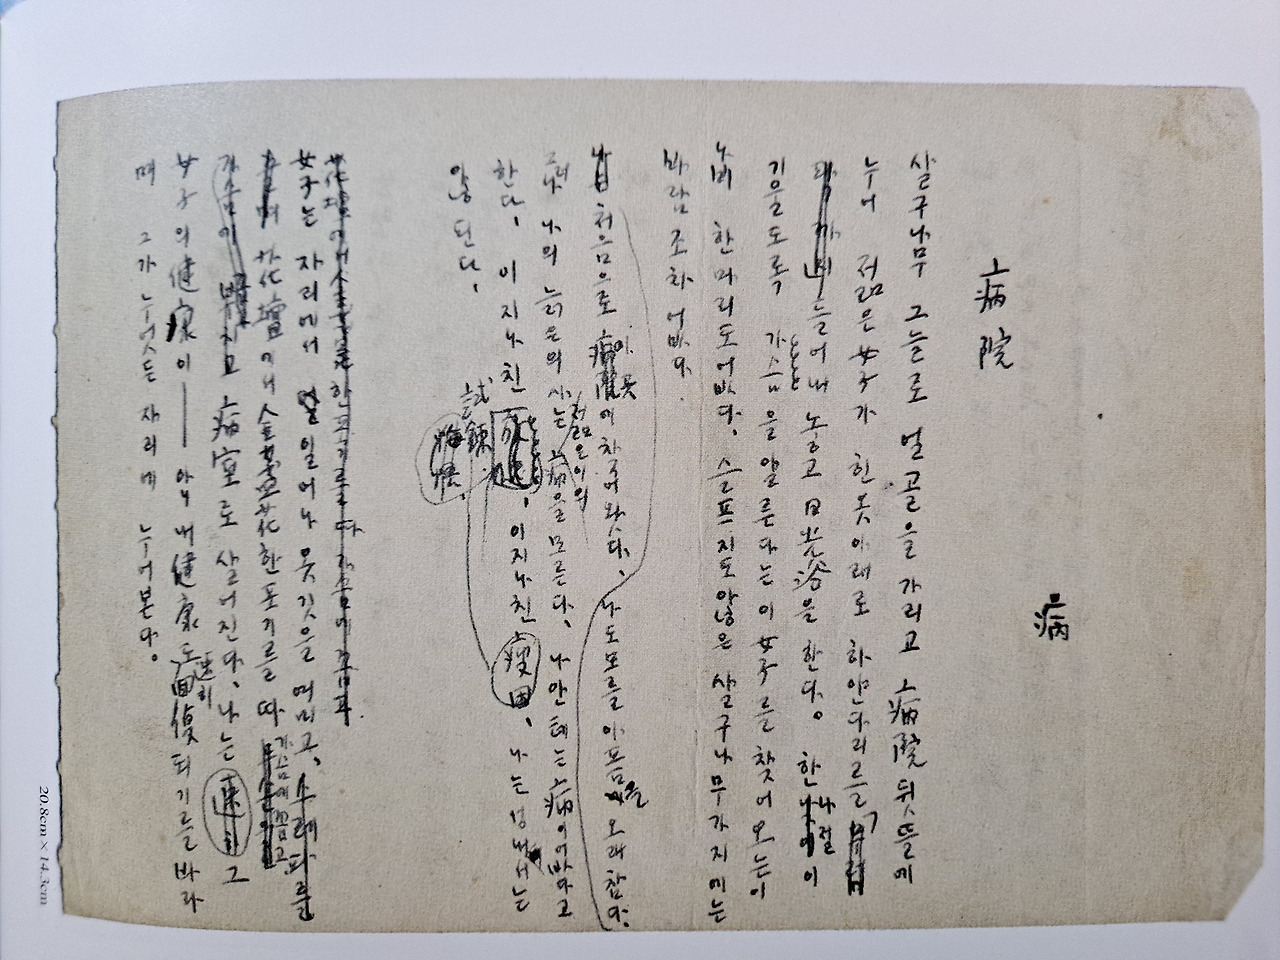 病
病院
살구나무 그늘로 얼골을 가리고 病院 뒷뜰에
누어 젊은 女子가 힌옷아래로 하얀다리를
들어내 놓고 日光浴을 한다。 한나절이
기울도록 가슴을 알른다는 이 女子를 찾어 오는이
나비 한마리도 없다. 슬프지도않은 살구나무가지에는
바람조차 없다.
처음으로 이곳에 찾어왓다. 나도모를 아픔을 오래참다.
그러나 나의 늙은의사는 젊은이의 病을모른다. 나안테는 病이없다고
한다. 이지나친 試鍊. 이지나친 疲困. 나는 성내서는
않된다.
悔恨.
女子는 자리에서 일어나 옷깃을 여미고
花壇에서 金盞花 한포기를 따 가슴에 꼽고
病室로 살어진다. 나는 그
女子의 健康이 —— 아니 내 健康도 速히 回復되기를 바라
며 그가 누엇든 자리에 누어본다。
20.8cm × 14.3cm